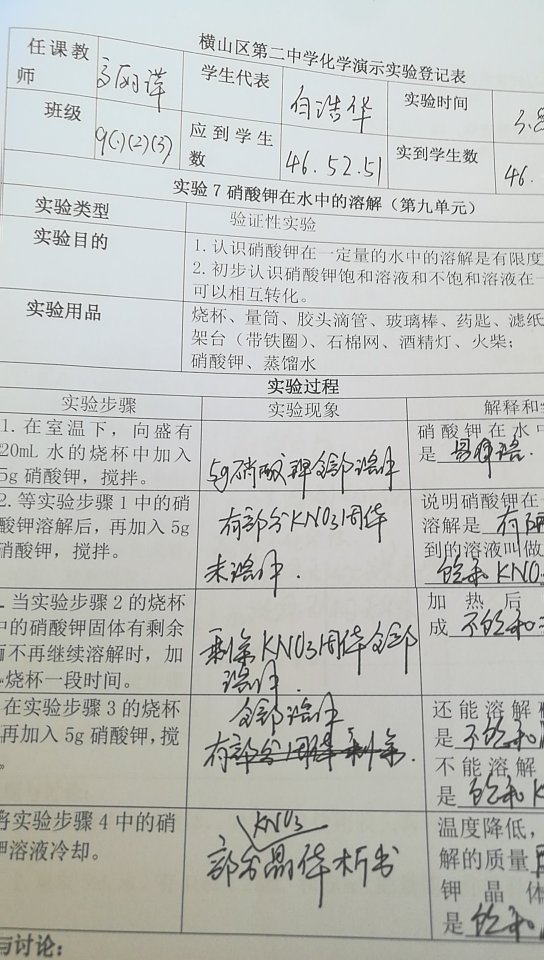 横山区第二中学化学演示实验登记表
任课教师 学生代表 白浩华 实验时间
班级 9(1)(2)(3) 应到学生数 46.52.51 实到学生数 46.
实验7 硝酸钾在水中的溶解（第九单元）
实验类型 验证性实验
实验目的 1.认识硝酸钾在一定量的水中的溶解是有限度
2.初步认识硝酸钾饱和溶液和不饱和溶液在一
可以相互转化。
实验用品 烧杯、量筒、胶头滴管、玻璃棒、药匙、滤纸
架台（带铁圈）、石棉网、酒精灯、火柴；
硝酸钾、蒸馏水
实验过程
实验步骤 实验现象 解释和
1.在室温下，向盛有
20mL 水的烧杯中加入
5g 硝酸钾，搅拌。
5g硝酸钾全部溶解
硝酸钾在水中
是 易溶
2.等实验步骤 1 中的硝
酸钾溶解后，再加入 5g
硝酸钾，搅拌。
有部分KNO3固体
未溶解.
说明硝酸钾在一
溶解是 有限
到的溶液叫做
饱和KNO3
.当实验步骤 2 的烧杯
中的硝酸钾固体有剩余
而不再继续溶解时，加
烧杯一段时间。
剩余KNO3固体全部
溶解.
加热后
成 不饱和
在实验步骤 3 的烧杯
再加入 5g 硝酸钾，搅
。
全部溶解
有部分固体剩余.
还能溶解
是 不饱和
不能溶解
是 饱和K
将实验步骤 4 中的硝
钾溶液冷却。
KNO3
部分晶体析出
温度降低，
解的质量
钾晶体
是 饱和
与讨论：